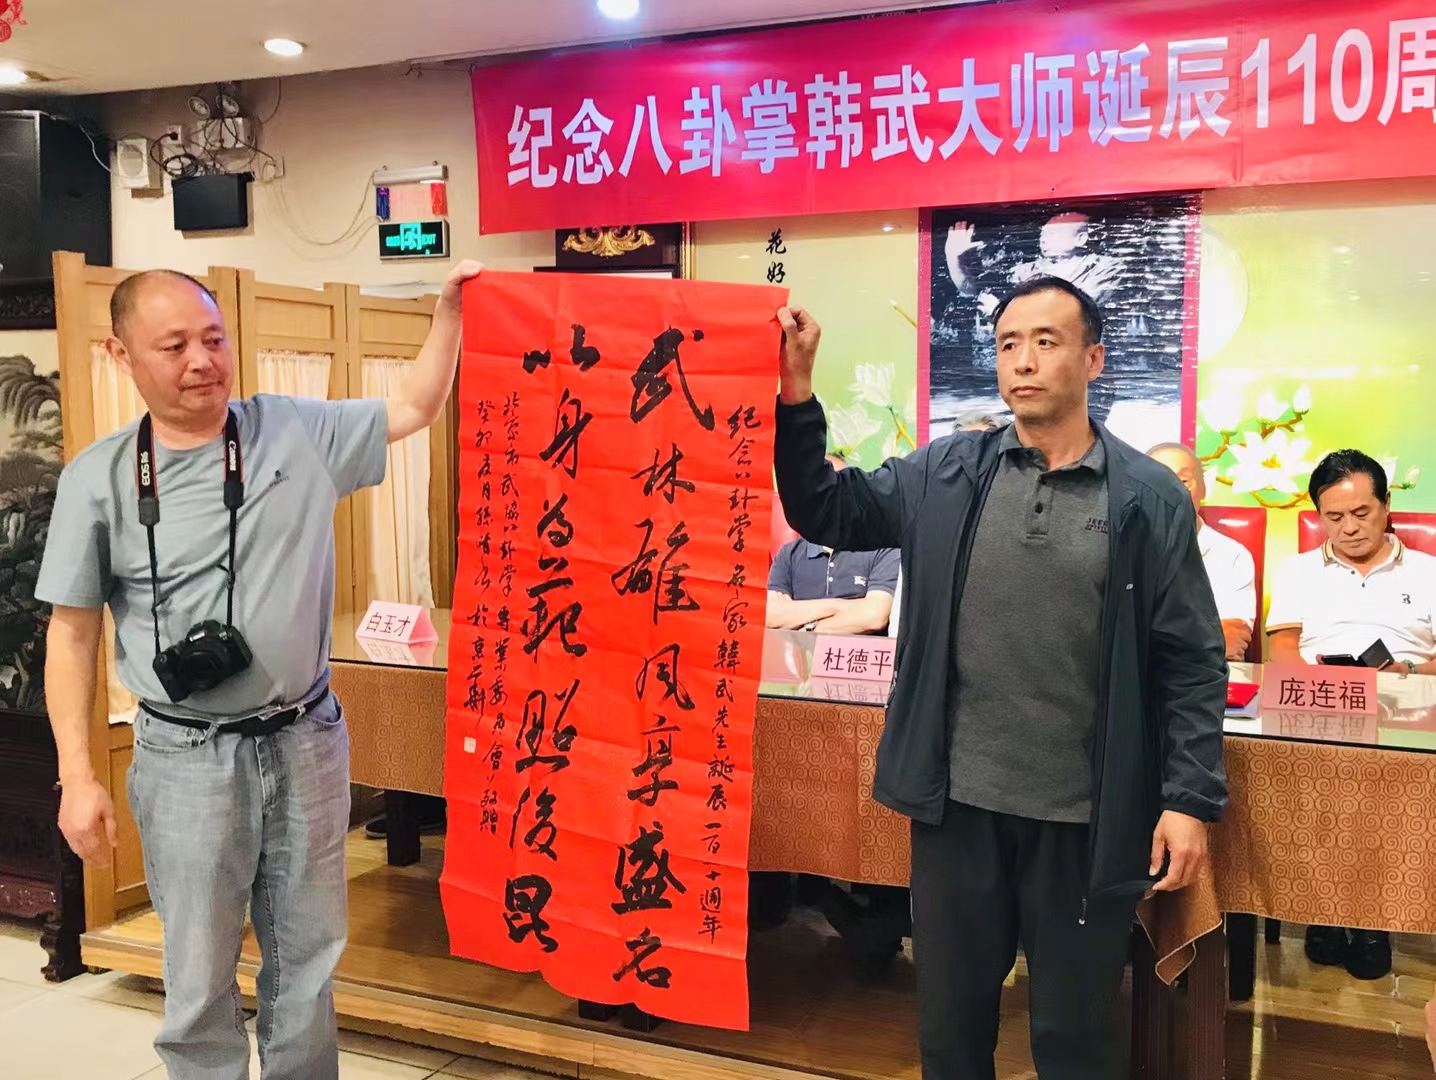 纪念八卦掌韩武大师诞辰110周
花好
EXIT
纪念八卦掌名家韓武先生誕辰一百一十週年
武林雄风享盛名
以身为范照後昆
北京市武协八卦掌專業委员會敬赠
癸卯
白玉才
杜德平
庞连福
Canon
EOS R6
JEEP